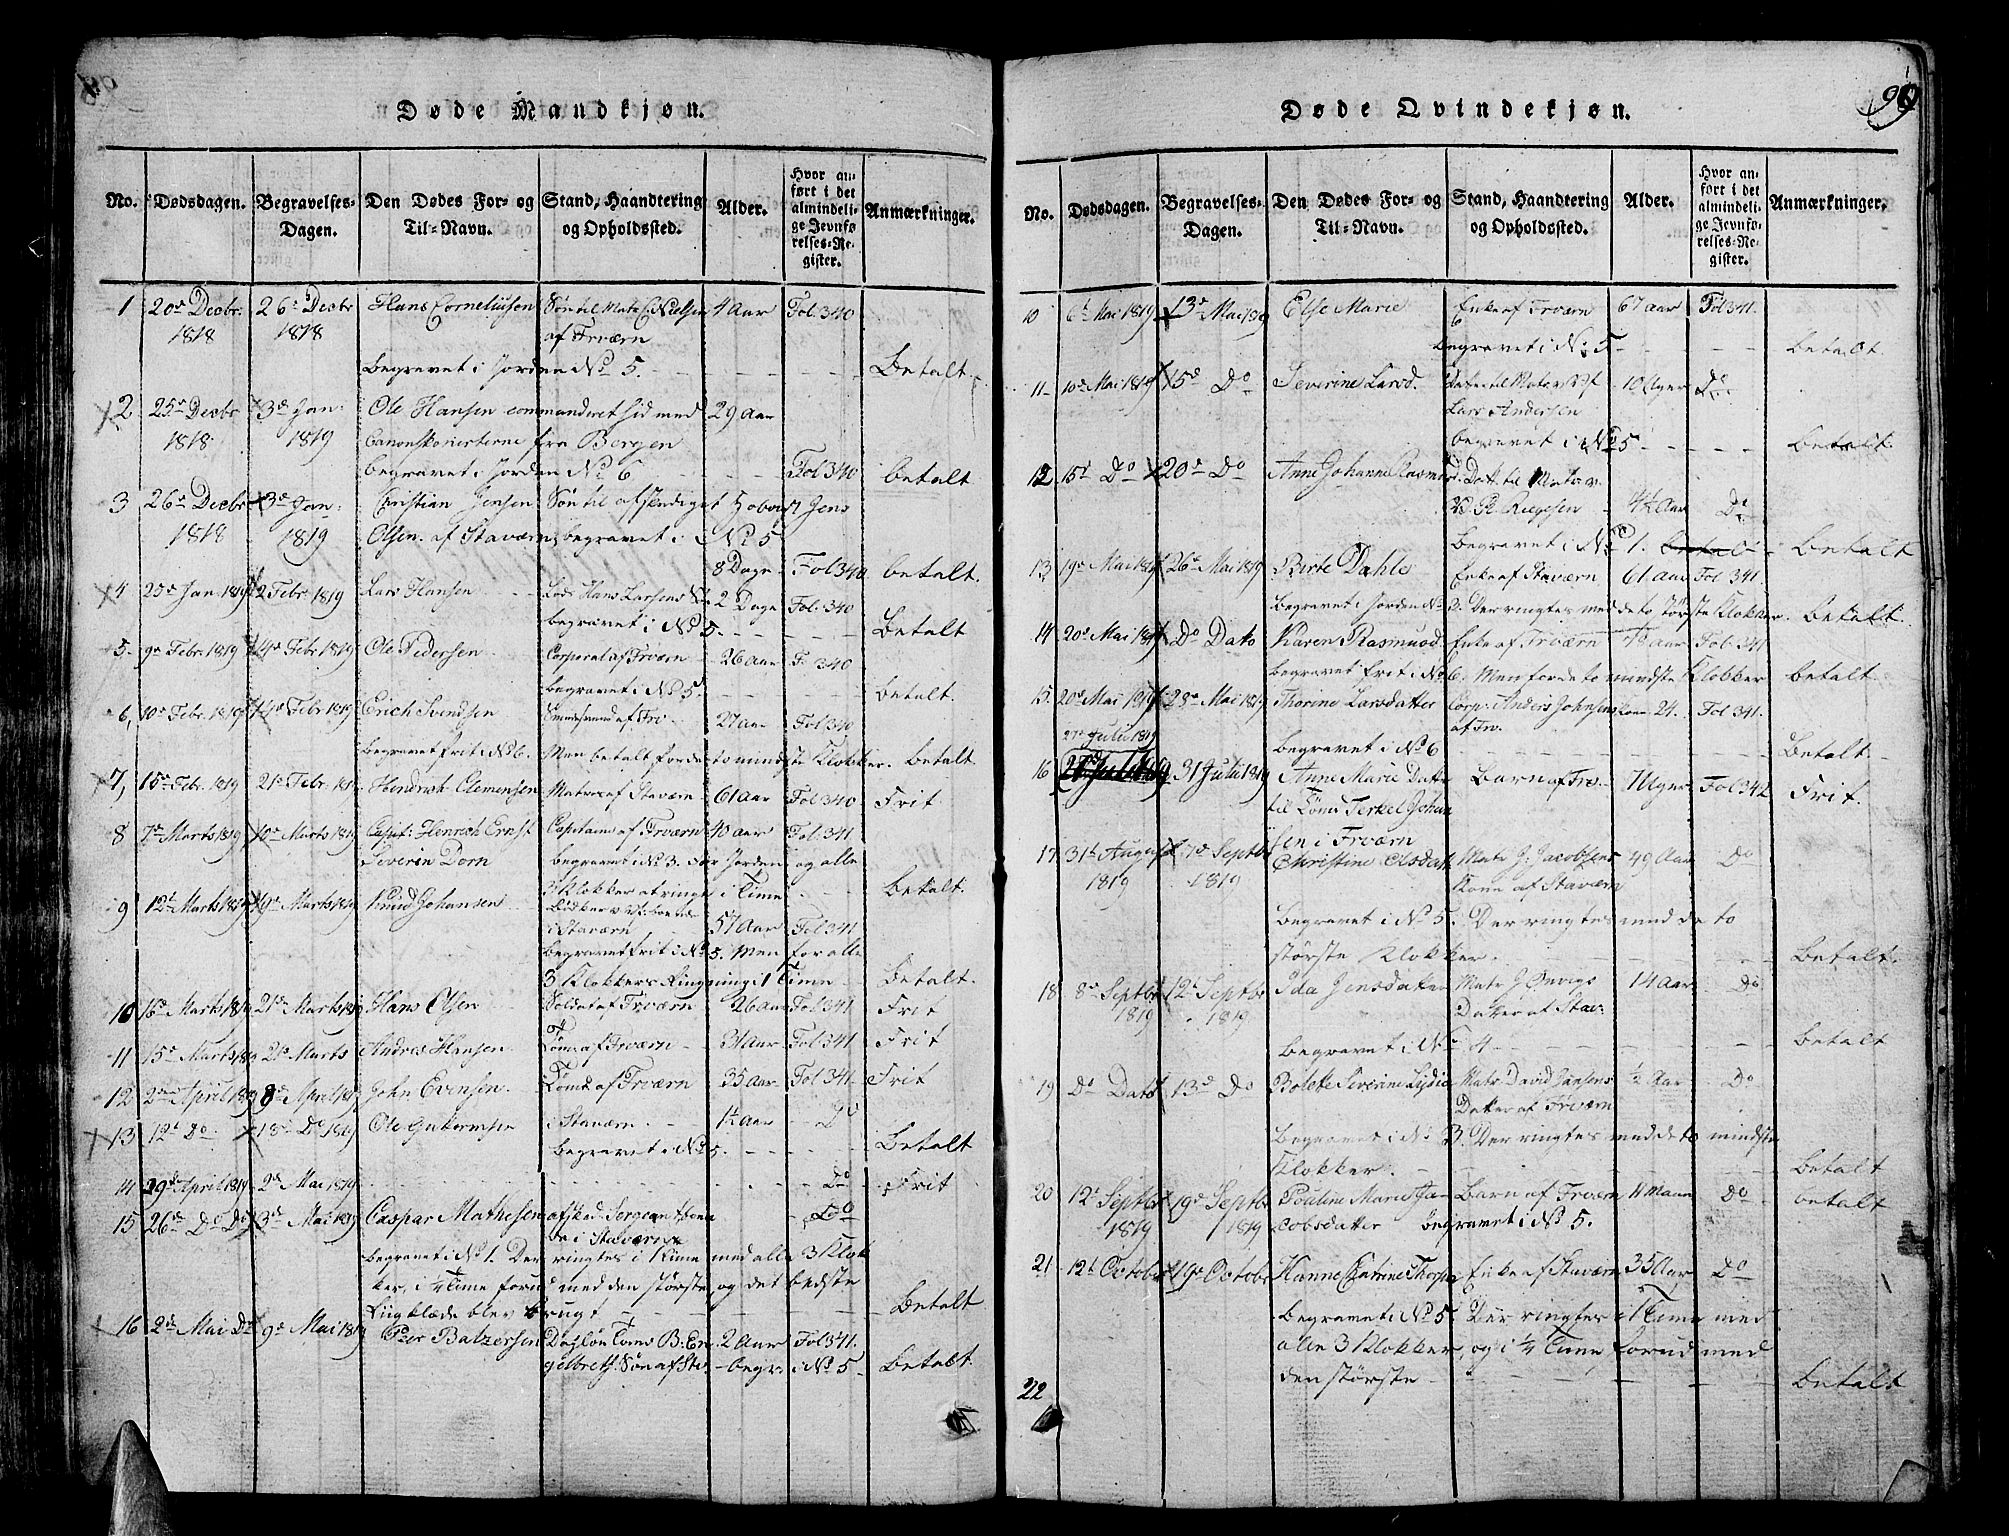 Døde Mandkjøn.
No. Dødsdagen. Begravelses-Dagen. Den Dødes For- og Til-Navn. Stand, Haandtering og Opholdssted. Alder. Hvor anført i det almindelige Jevnførelses-Register. Anmærkninger.
1 20de Decbr. 26de Decbr Hans Corneliusen Søn til Matr. C. Nielsen 4 Aar Fol: 340
1818 1818 af Frværn
Begravet i Jorden No 5. Betalt
2 25de Decbr 3de Jan: Ole Hansen commanderet hid med 29 Aar
1818 1819 fra Bergen
begravet i Jorden No 6 Fol 340 betalt
3 26de Decbr 3de Jan: Christian Jensen Søn til afskendiget Jens
1818 1819 Olsen af Staværn, begravet i No 5
8 Dage Fol 340 betalt.
4 Jan 1819 2 Febr. 1819 Lars Hansen Lods Hans Larsens 2 Dage Fol: 340
begravet i No 5. Betalt
5. 9de Febr. 1819 14de Febr 1819 Ole Pedersen Corporal af Frværn 26 Aar F. 340
begravet i No 5. betalt.
6, 10de Febr. 1819 14de Febr 1819 Erich Svendsen af Frv. 27 Aar Fol 340
begravet frit i No 6. Men betalt for de to mindste Klokker. betalt
7, 15de Febr. 1819 21de Febr. 1819 Hendrich Clemensen Matros af Staværn 61 Aar Fol 340 Frit
8 7de Marts 1819 10de Marts 1819 Capt: Henrich Ernst Capitain af Frværn 40 Aar Fol: 341
Severin Dorn begravet i No 3. For Jorden og alle
3 Klokker at ringe i 1 Time Betalt.
9 12te Marts 1819 19de Marts 1819 Knud Johansen
i Staværn 57 Aar Fol 341
begravet frit i No 5. Men for alle
3 Klokkers Ringning i 1 Time Betalt.
10 16de Marts 1819 21de Marts 1819 Hans Olsen Soldat af Frværn 26 Aar Fol 341 Frit
11 15de Marts 1819 21de Marts Andreas Hansen af Frværn 31 Aar Fol 341 Frit
12 2den April 1819 8de April 1819 John Evensen af Frværn 35 Aar Fol 341. Frit
13 12te Do 18de Do 1819 Ole i Staværn 1½ Aar Do
Begravet i No 5. Betalt
14 29de April 1819 2den Mai 1819 Do Frit
15 26de Do Do 3de Mai 1819 Caspar Mathesen afsked: Sergeant Do
i Staværn
begravet i No 1. Der ringtes i 1 Time med alle 3 Klok
ker, i ½ Time forud med den største og det bedste
Liigklæde blev brugt Betalt
16 2den Mai Do 9de Mai 1819 Peer Baltzersen 2 Aar Fol 341.
Søn af Sta: begr: i No 5 Betalt.
Døde Qvindekjøn. 99
No. Dødsdagen. Begravelses-Dagen. Den Dødes For- og Til-Navn. Stand, Haandtering og Opholdssted. Alder. Hvor anført i det almindelige Jevnførelses-Register. Anmærkninger.
10 6te Mai 1819 13de Mai 1819 Else Marie Enke af Frværn 67 Aar Fol 341.
begravet i No 5 betalt.
11 10de Mai 1819 15de Do Severine Larsd. Datter til Matr
Lars Andersen 10 Uger Do
begravet i No 5 betalt.
12 15de Do 20de Do Anne Johanne Rasmus Datt: til Matr.
4½ Aar Do
Begravet i No 1. betalt Betalt
13 19de Mai 1819 26de Mai 1819 Birte Dahls Enke af Staværn 61 Aar Fol 341.
begravet i Jorden No 2. Der ringtes med de to største Klokker. betalt.
14 20de Mai 1819 Do Dato Karen Rasmusd Enke af Frværn Aar Fol: 341
begravet frit i No 6. Men for de to mindste Klokker betalt
15. 20de Mai 1819 28de Mai 1819 Thorine Larsdatter Corp: Anders Johnsens Kone 24. Fol 341.
af Frv.
begravet i No 6 Betalt.
27de Julii 1819
16 31 Julii 1819 Anne Marie Datt: Barn af Frv. 7 Uger Fol 342 Frit.
til Terkel Johan
sen i Frværn
17 31te August 7de Septbr Christine Olsdatt: Matr J: Jacobsens 49 Aar Do
1819 1819 Kone af Staværn
Begravet i No 5. Der ringtes med de to
største Klokker. Betalt.
18 8de Septbr 12te Septbr Ida Jensdatter Matr J 14 Aar Do
1819 1819 Datter af Stav:
begravet i No 4 Betalt
19 Do Dato 13de Do Bolete Severine Lydia Matr: David Jansens ½ Aar Do
Datter af Frværn
Begravet i No 3. Der ringtes med de to mindste
Klokker. Betalt
20 12te Septbr 19de Septbr Pouline Marie Ja- Barn af Frværn 11 Maan Do betalt
1819 1819 cobsdatter begravet i No 5.
21 12te October 19de October Hanne Catrine Enke af Staværn 35 Aar Do
Begravet i No 5. Der ringtes i 1 Time med
alle 3 Klokker, og i ½ Time forud med
den største Betalt
22